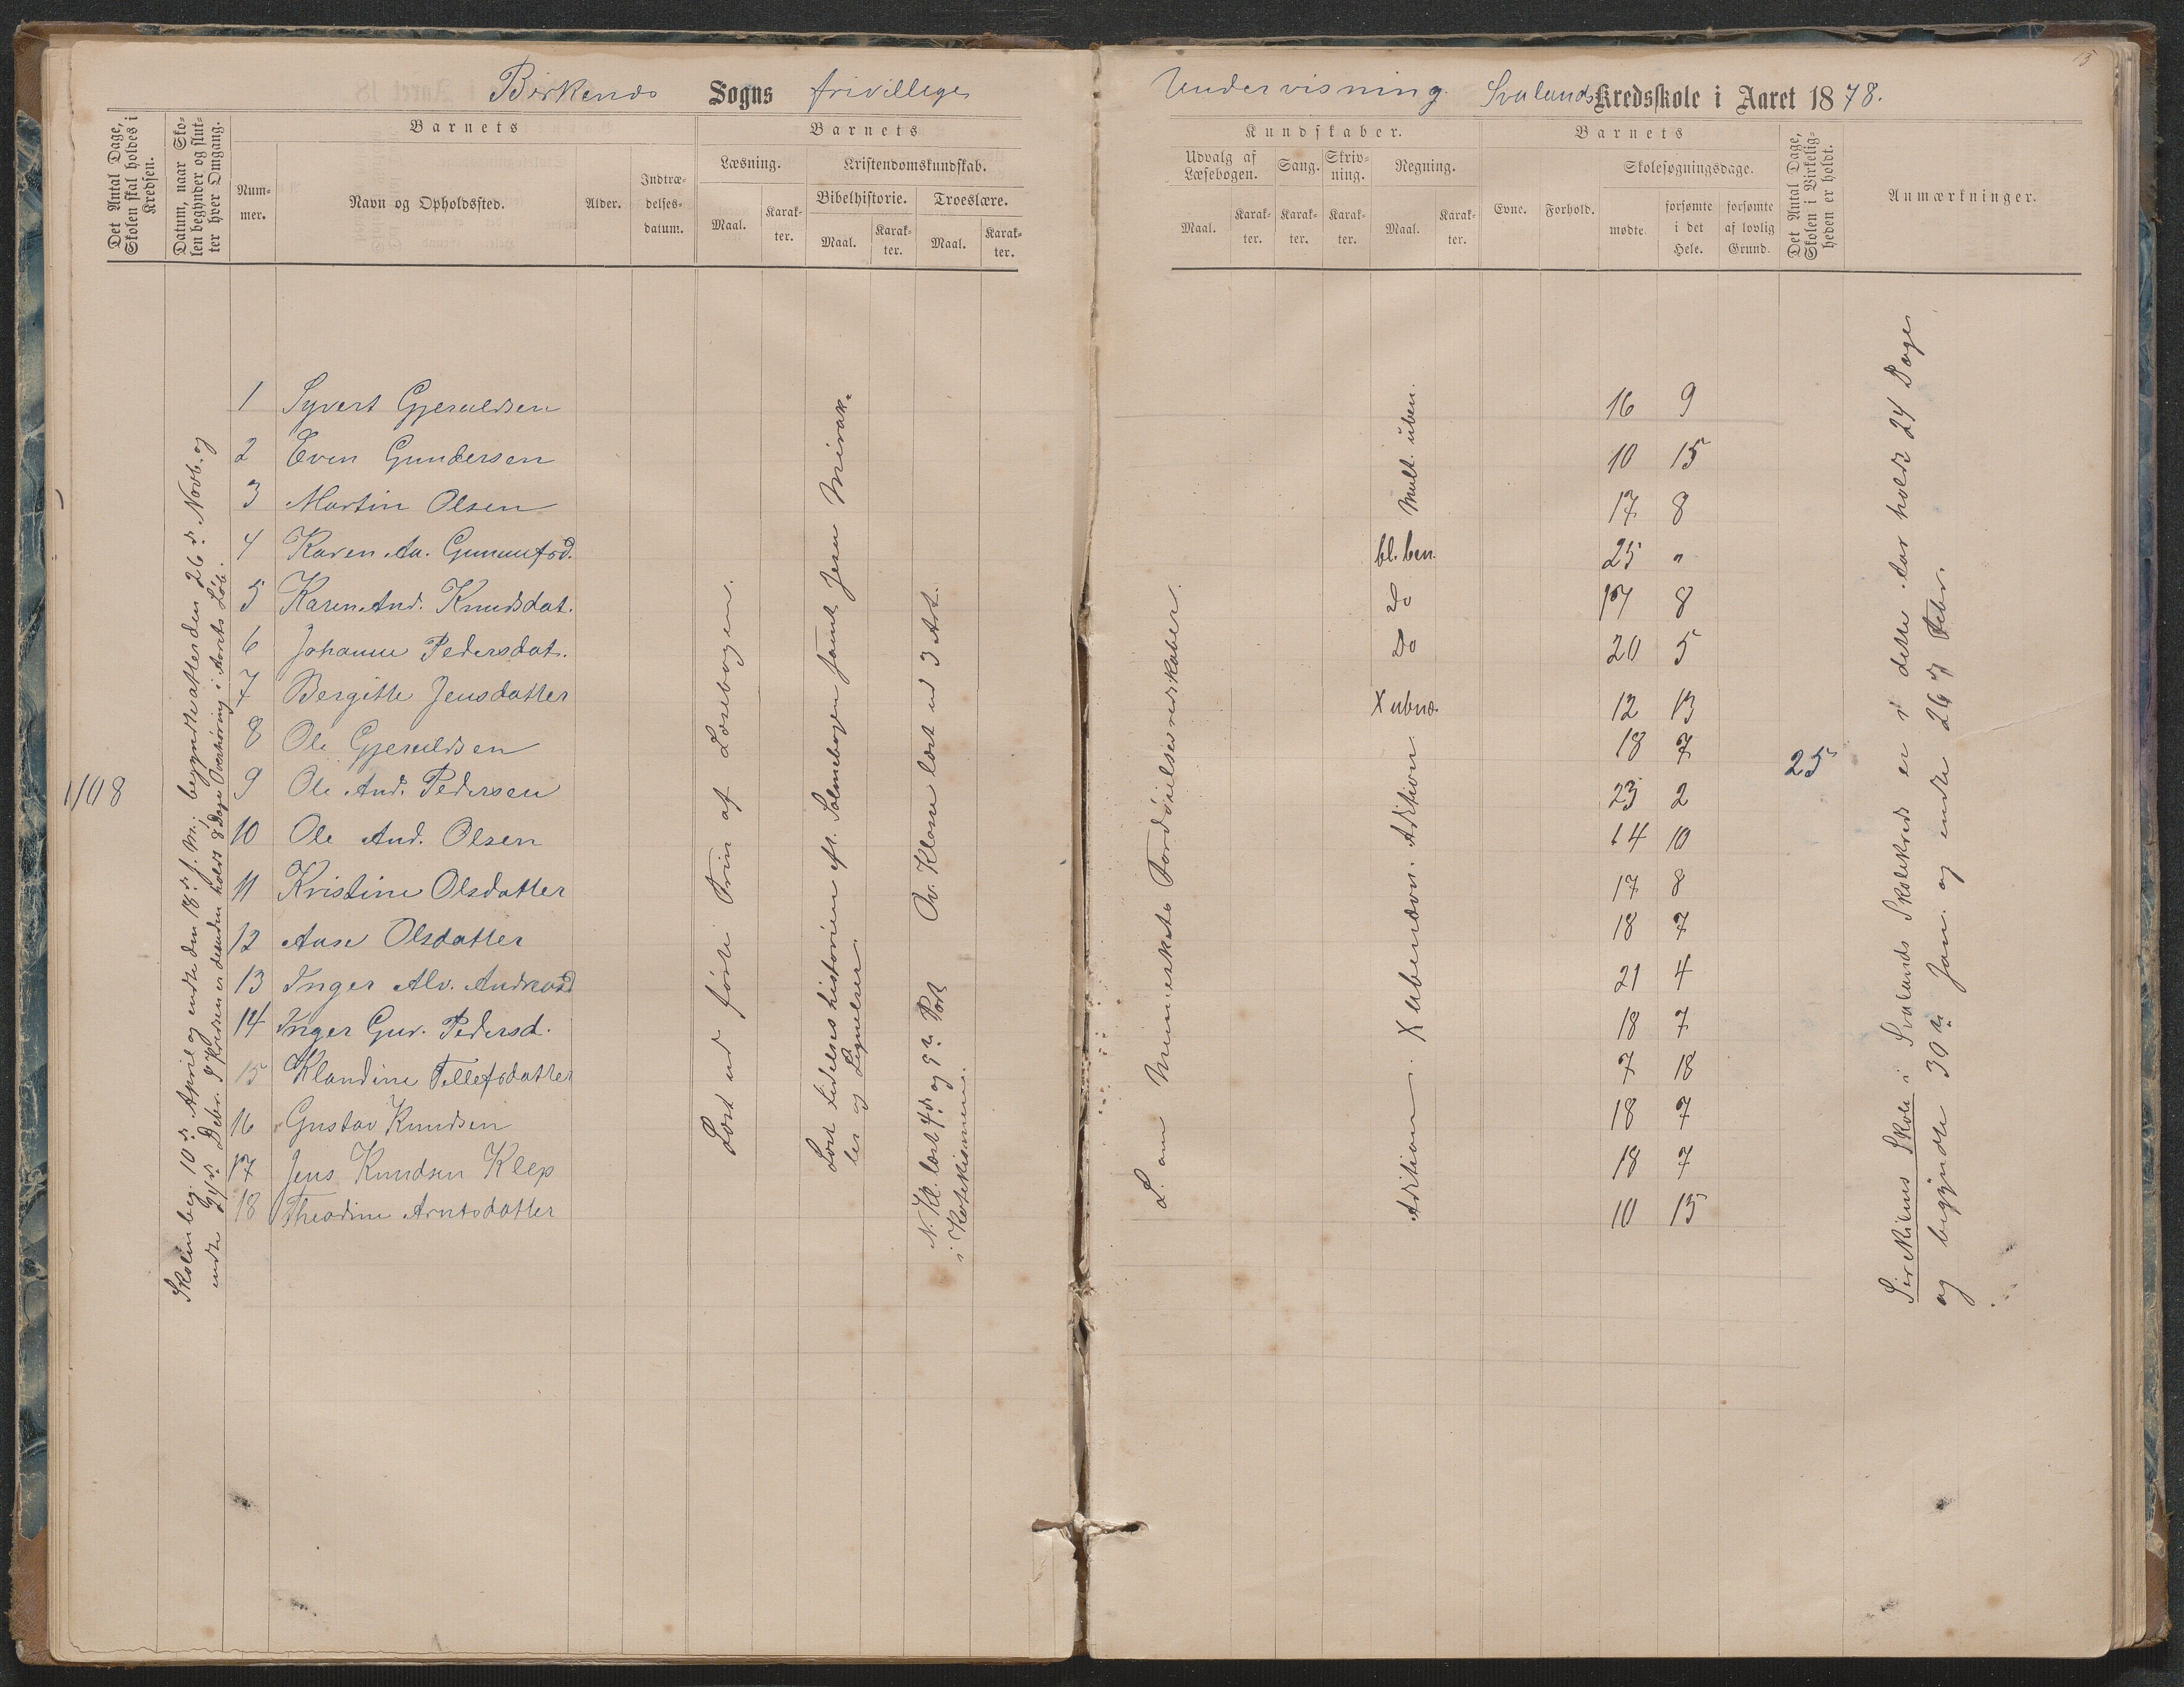 Birkenes Sogns frivillige Undervisning Svalands Kredsskole i Aaret 1878.
15
Det Antal Dage, Skolen skal holdes i Kredsen.
Datum, naar Skolen begynder og slutter hver Omgang.
Barnets
Nummer.
Navn og Opholdssted.
Alder.
Indtrædelsesdatum.
Barnets
Læsning.
Maal.
Karakter.
Kristendomskundskab.
Bibelhistorie.
Maal.
Karakter.
Troeslære.
Maal.
Karakter.
Kundskaber.
Udvalg af Læsebogen.
Maal.
Karakter.
Sang.
Karakter.
Skrivning.
Karakter.
Regning.
Maal.
Karakter.
Barnets
Evne.
Forhold.
Skolesøgningsdage.
mødte.
forsømte i det Hele.
forsømte af lovlig Grund.
Det Antal Dage, Skolen i Virkeligheden er holdt.
Anmærkninger.
1 Syvert Gjeruldsen 16 9
2 Even Gundersen 10 15
3 Martin Olsen 17 8
4 Karen Aa. 25 "
5 Karen And. Knudsdat. 17 8
6 Johanne Pedersdat. 20 5
7 Bergitte Jensdatter 12 13
8 Ole Gjeruldsen 18 7
9 Ole And. Pedersen 23 2
10 Ole And. Olsen 14 10
11 Kristine Olsdatter 17 8
12 Aase Olsdatter 18 7
13 Inger Alv. 21 4
14 Inger Gur. Pedersd. 18 7
15 Klandine Tellefsdatter 7 18
16 Gustav Knudsen 18 7
17 Jens Knudsen Klep 18 7
18 Theodine Arntsdatter 10 15
Skolen beg. 10de April og endte den 18de s. M.; begyndte atter den 26de Novb. og
endte Debr. I Kredsen er desuden holdt 8 Dage Overhøring i Aarets Løb.
Læst ud første Trin af Læsebogen.
Læst Lidelseshistorien ef. Salmebogen samt Jesu Mirak-
ler og Lignelser
Øv. Klasse lært ud 3 Art.
N. Kl. lært 4de og 5te Part
i Katekismen.
L. om Menneskets Fordøielsesredskaber.
Mult. uben.
bl. ben.
do
do
X ubnæ.
Adition. X ubenævn. Adition.
25
Sirekilens Skole i Svalands Skolekreds er i dette Aar holdt 24 Dage
og begyndte 30te Jan. og endte 26de Febr.